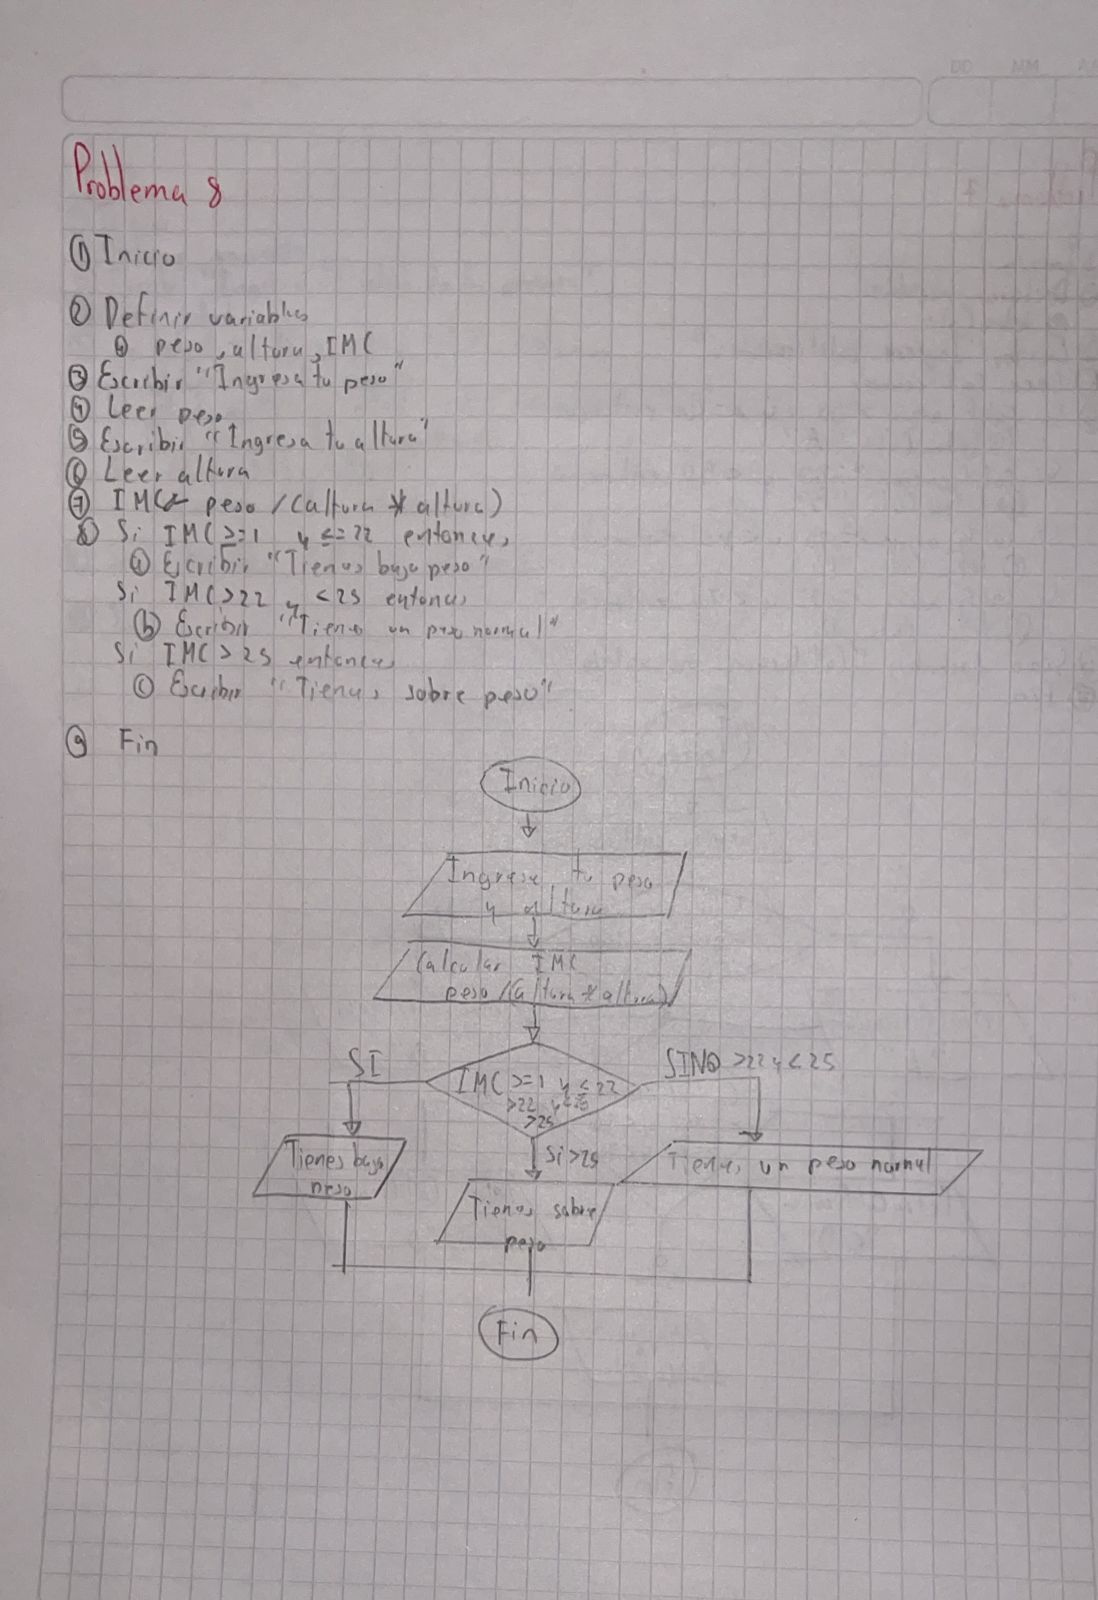 Problema 8
① Inicio
② Definir variables
ⓐ peso, altura, IMC
③ Escribir "Ingresa tu peso"
④ Leer peso
⑤ Escribir "Ingresa tu altura"
⑥ Leer altura
⑦ IMC ← peso / (altura * altura)
⑧ Si IMC >=1 y <=22 entonces
ⓐ Escribir "Tienes bajo peso"
Si IMC >22 y <25 entonces
ⓑ Escribir "Tienes un peso normal"
Si IMC > 25 entonces
ⓒ Escribir "Tienes sobre peso"
⑨ Fin
Inicio
Ingresa tu peso
y altura
Calcular IMC
peso/(altura * altura)
SI
SINO >22 y < 25
IMC >=1 y <=22
>22 y <25
>25
Si >25
Tienes bajo
peso
Tienes un peso normal
Tienes sobre
peso
Fin